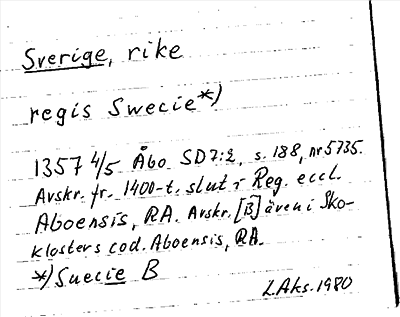 Sverige, rike
regis Swecie*)
1357 4/5 Åbo SD7:2, s. 188, nr 5735.
Avskr. fr. 1400-t. slut i Reg. eccl.
Aboensis, RA. Avskr. [B] även i Sko-
klosters cod. Aboensis, RA.
*) Suecie B
L.Aks. 1980